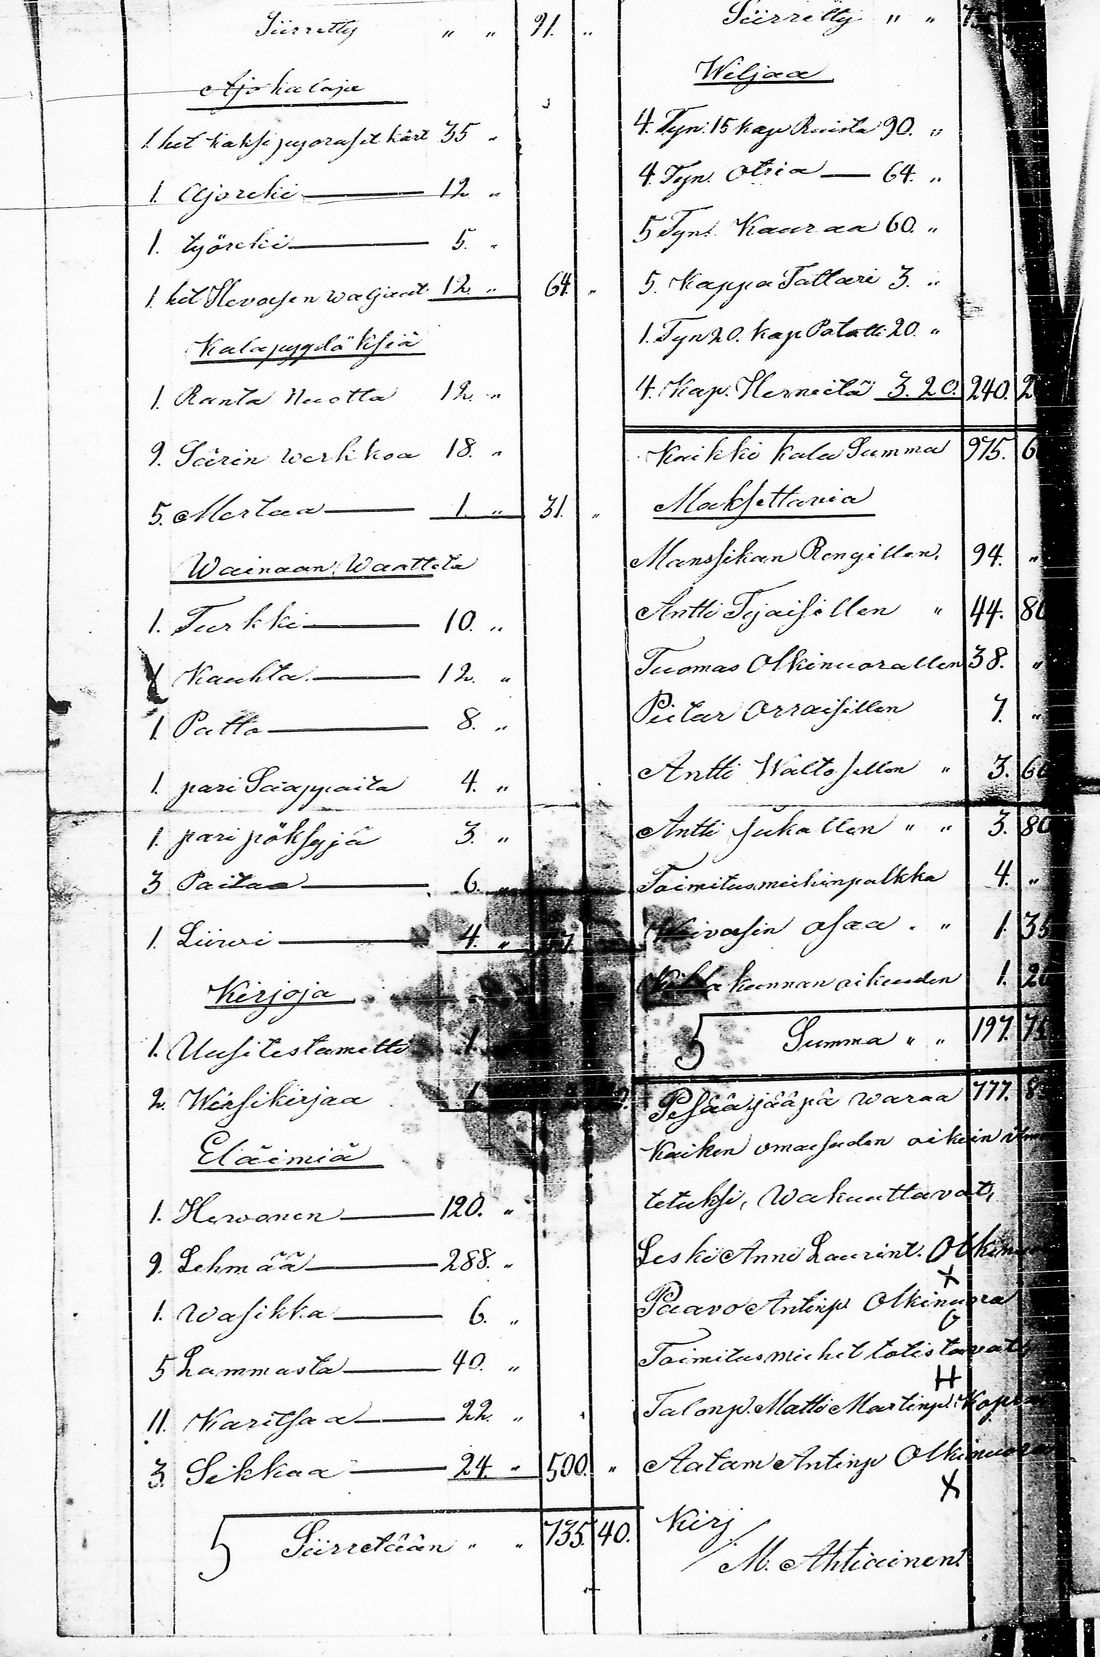 Siirretty " " 91. "
Ajokaloja
1. het kaksi pyöräset kärt 35 "
1. Ajoreki 12 "
1. työreki 5. "
1. het Hevosen waljaat 12. " 64. "
Kalapyydöksiä
1. Ranta Nuotta 12. "
9. Säirin werkkoa 18. "
5. Mertaa 1. " 31. "
Wainaan Waatteta
1. Turkki 10. "
1 Kauhta 12. "
1. Patto 8. "
1. pari Saappaita 4. "
1. pari pöksyjä 3. "
3 Paitaa 6. "
1. Liiwi 4. "
Kirjoja
1. Uusitestametti 1
2. Wirsikirjaa
Eläimiä
1. Hewonen 120. "
9. Lehmää 288. "
1. Wasikka 6. "
5 Lammasta 40. "
11. Karitsaa 22. "
3. Sikkaa 24 " 500. "
Siirretään " " 735. 40.
Siirretty " "
Wiljaa
4. Tyn: 15 kap Ruista 90. "
4. Tyn. Otria 64. "
5 Tyn. Kauraa 60. "
5. Kappa Tattari 3. "
1. Tyn 20. kap Potatti 20. "
4. Kap. Herneitä 3. 20. 240. 2
Kaikki kalu Summa 975. 6
Maksettavia
Manssikan Rengillen. 94. "
Antti Tijaisellen " 44. 80
Tuomas Olkinuorallen 38. "
Pietar Orraisellen 7. "
Antti Waltosellen " 3. 60
Antti Jukallen " " 3. 80
Toimitusmiehinpalkka 4. "
Waivasin osaa . " 1. 35
Kihlakunnan oikeuden 1. 20
Summa " " 197. 75
Pesääjääpä waraa 777. 8
Kaiken omaisuden oikein
tetuksi, Wakuuttavat,
Leski Anni Laurint. Olkinuora
X
Paavo Antinp Olkinuora
Toimitusmiehet totistavat
H
Talonp. Matti Martinp.
Aatam Antinp Olkinuora
X
Kirj
M. Ahtiainen.